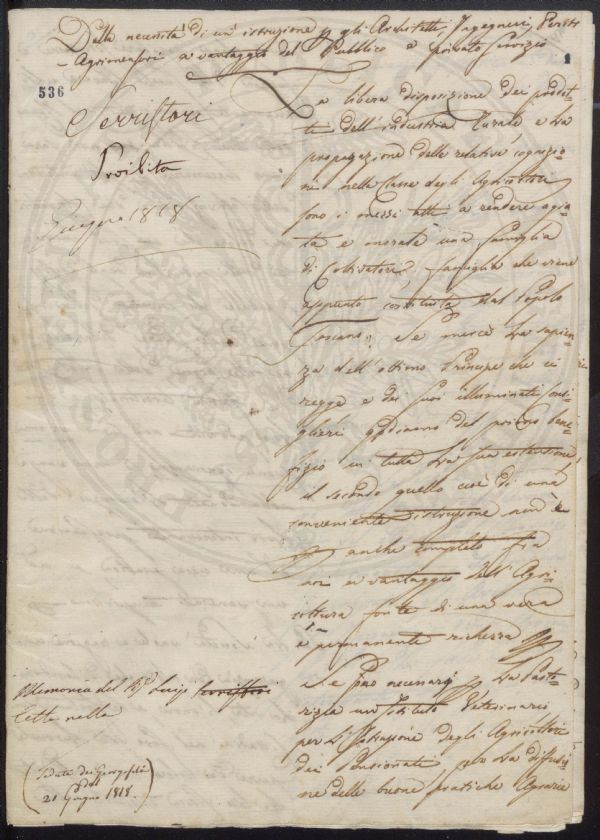 Della necessità di un' istruzione p gli Architetti, Ingegneri, Periti
Agrimensori a vantaggio del Pubblico e privato Servizio
1
536
Serristori
Proibita
Giugno 1818
La libera disposizione dei prodot-
ti dell' industria Rurale, e la
propagazione delle relative cognizio-
ni nella Classe degli Agricoltori
sono i mezzi atti a rendere agia-
ta e morata una famiglia
di Coltivatori, famiglia che viene
appunto costituita dal Popolo
Toscano. Se mercè la sapien-
za dell' ottimo Principe che ci
regge e dei suoi illuminati Consi-
glieri godiamo del primo bene-
fizio in tutta la sua estensione,
il secondo quello cioè di una
conveniente istruzione non è
anche completo fra
noi a vantaggio dell' Agri-
coltura fonte di una vera
e permanente richezza
Se fu necessario p la Pasto-
rizia un Istituto Veterinario
per l' Istruzione degli Agricoltori
dei Pensionati per la diffusio-
ne delle buone pratiche Agrarie
Memoria del Luigi Serristori
letta nella
Seduta dei Georgofili
del
21 Giugno 1818.